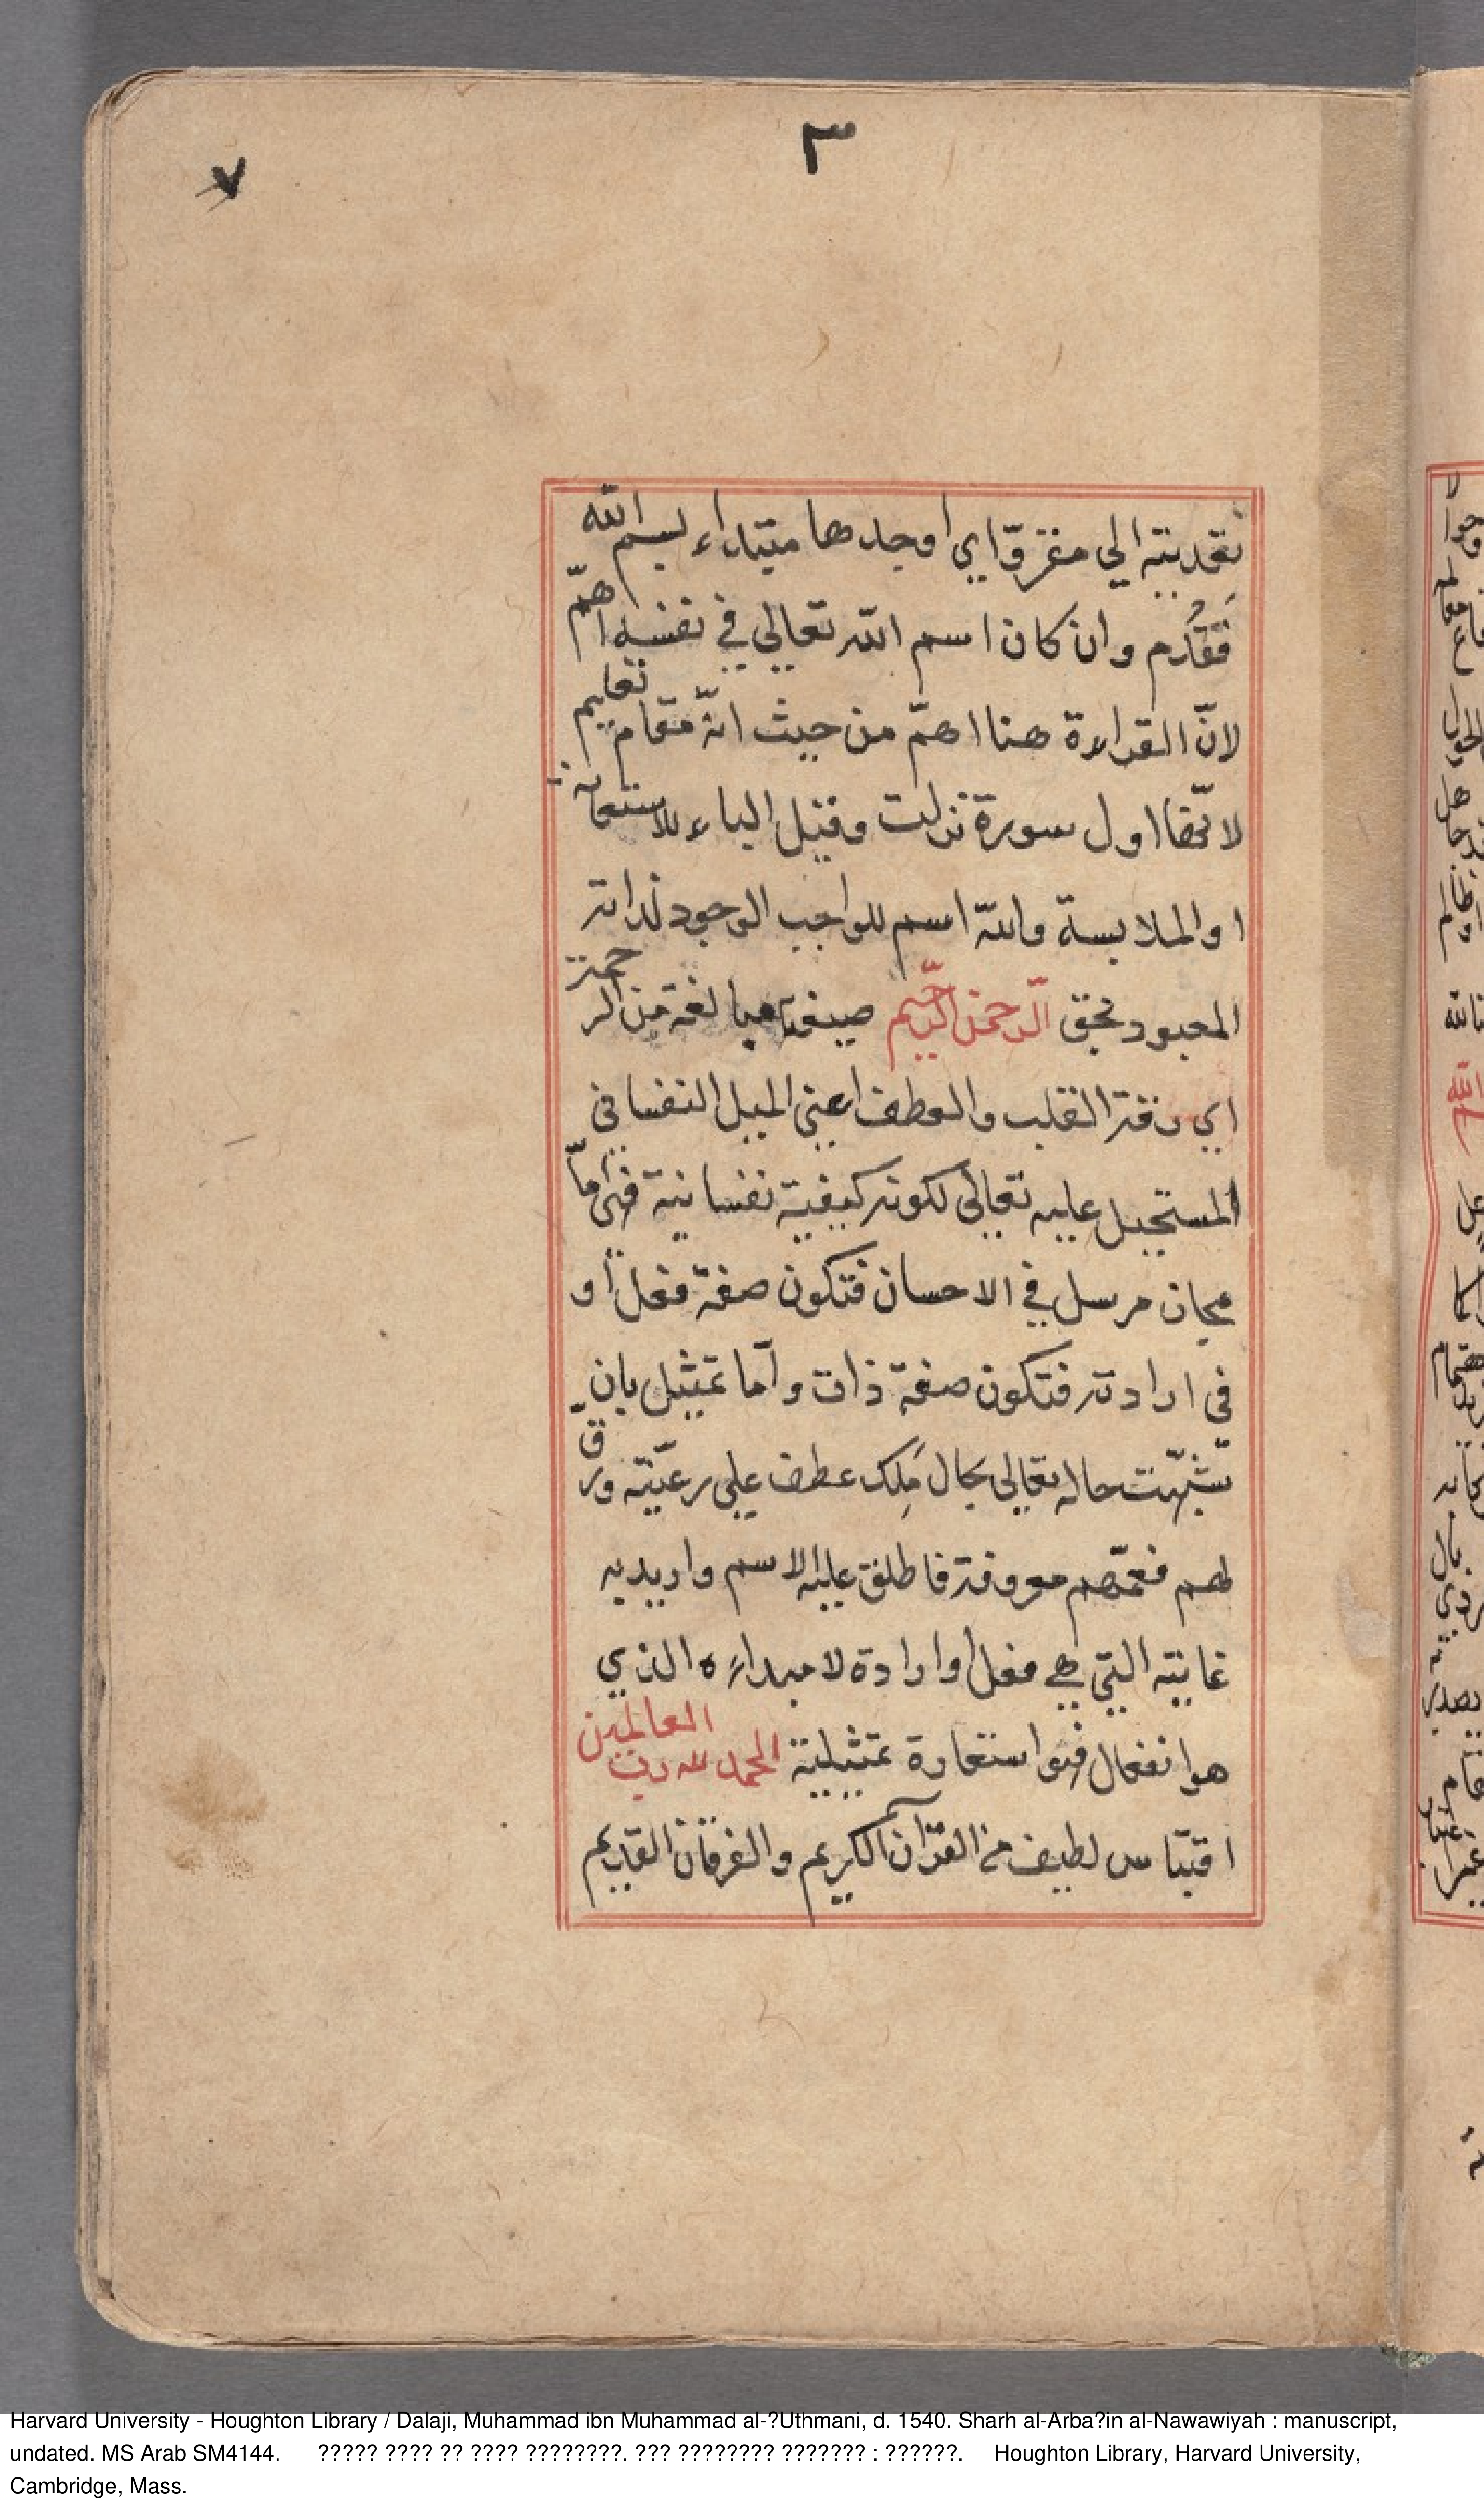 ٣
٧
تعديته الي مقروّ اي اوجدها مبتداء بسم الله
فَقُدِم وان كان اسم الله تعالي في نفسه اهمّ
لانّ القراءة هنا اهمّ من حيث انّه مقام تعليم
لانّها اول سورة نزلت وقيل الباء للاستعانة
او الملابسة والله اسم للواجب الوجود لذاته
المعبود بحق الرّحمن الرّحيم صيغتا مبالغة من الرحمة
اي رقة القلب والعطف اعني الميل النفساني
المستحيل عليه تعالي لكونه كيفية نفسانية فهي امّا
مجاز مرسل في الاحسان فتكون صفة فعل او
في ارادته فتكون صفة ذات وامّا تمثيل بان
شبّهت حاله تعالي بحال مَلِك عطف علي رعيّته ورقّ
لهم فعمّهم معروفه فاطلق عليه الاسم واريد به
غايته التي هي فعل او ارادة لا مبداءه الذي
هو انفعال فهو استعارة تمثيلية الحمد لله رب العالمين
اقتباس لطيف من القرآن الكريم والفرقان القديم
Harvard University - Houghton Library / Dalaji, Muhammad ibn Muhammad al-?Uthmani, d. 1540. Sharh al-Arba?in al-Nawawiyah : manuscript,
undated. MS Arab SM4144. ????? ???? ?? ???? ????????. ??? ???????? ??????? : ??????. Houghton Library, Harvard University,
Cambridge, Mass.